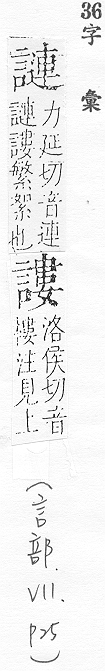 36
字彙
謰
力延切音連
謰謱繁絮也
謱
洛侯切音
樓注見上
(言部. VII. p25)